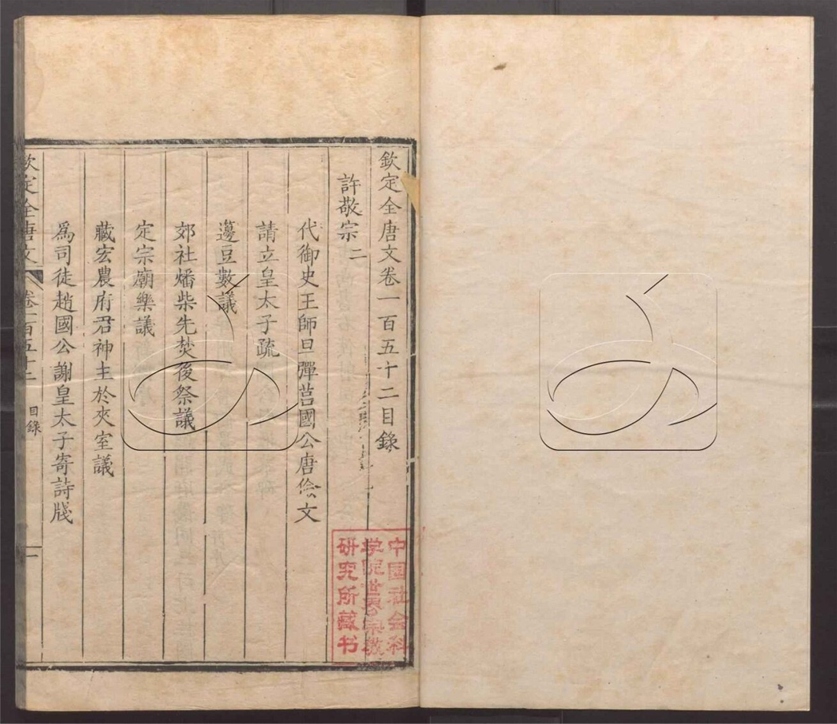 欽定全唐文卷一百五十二目錄
許敬宗二
代御史王師旦彈莒國公唐儉文
請立皇太子疏
籩豆數議
郊社燔柴先焚後祭議
定宗廟樂議
藏宏農府君神主於夾室議
爲司徒趙國公謝皇太子寄詩牋
欽定全唐文
卷一百五十二
目錄
一
中国社会科
学院世界宗教
研究所藏书